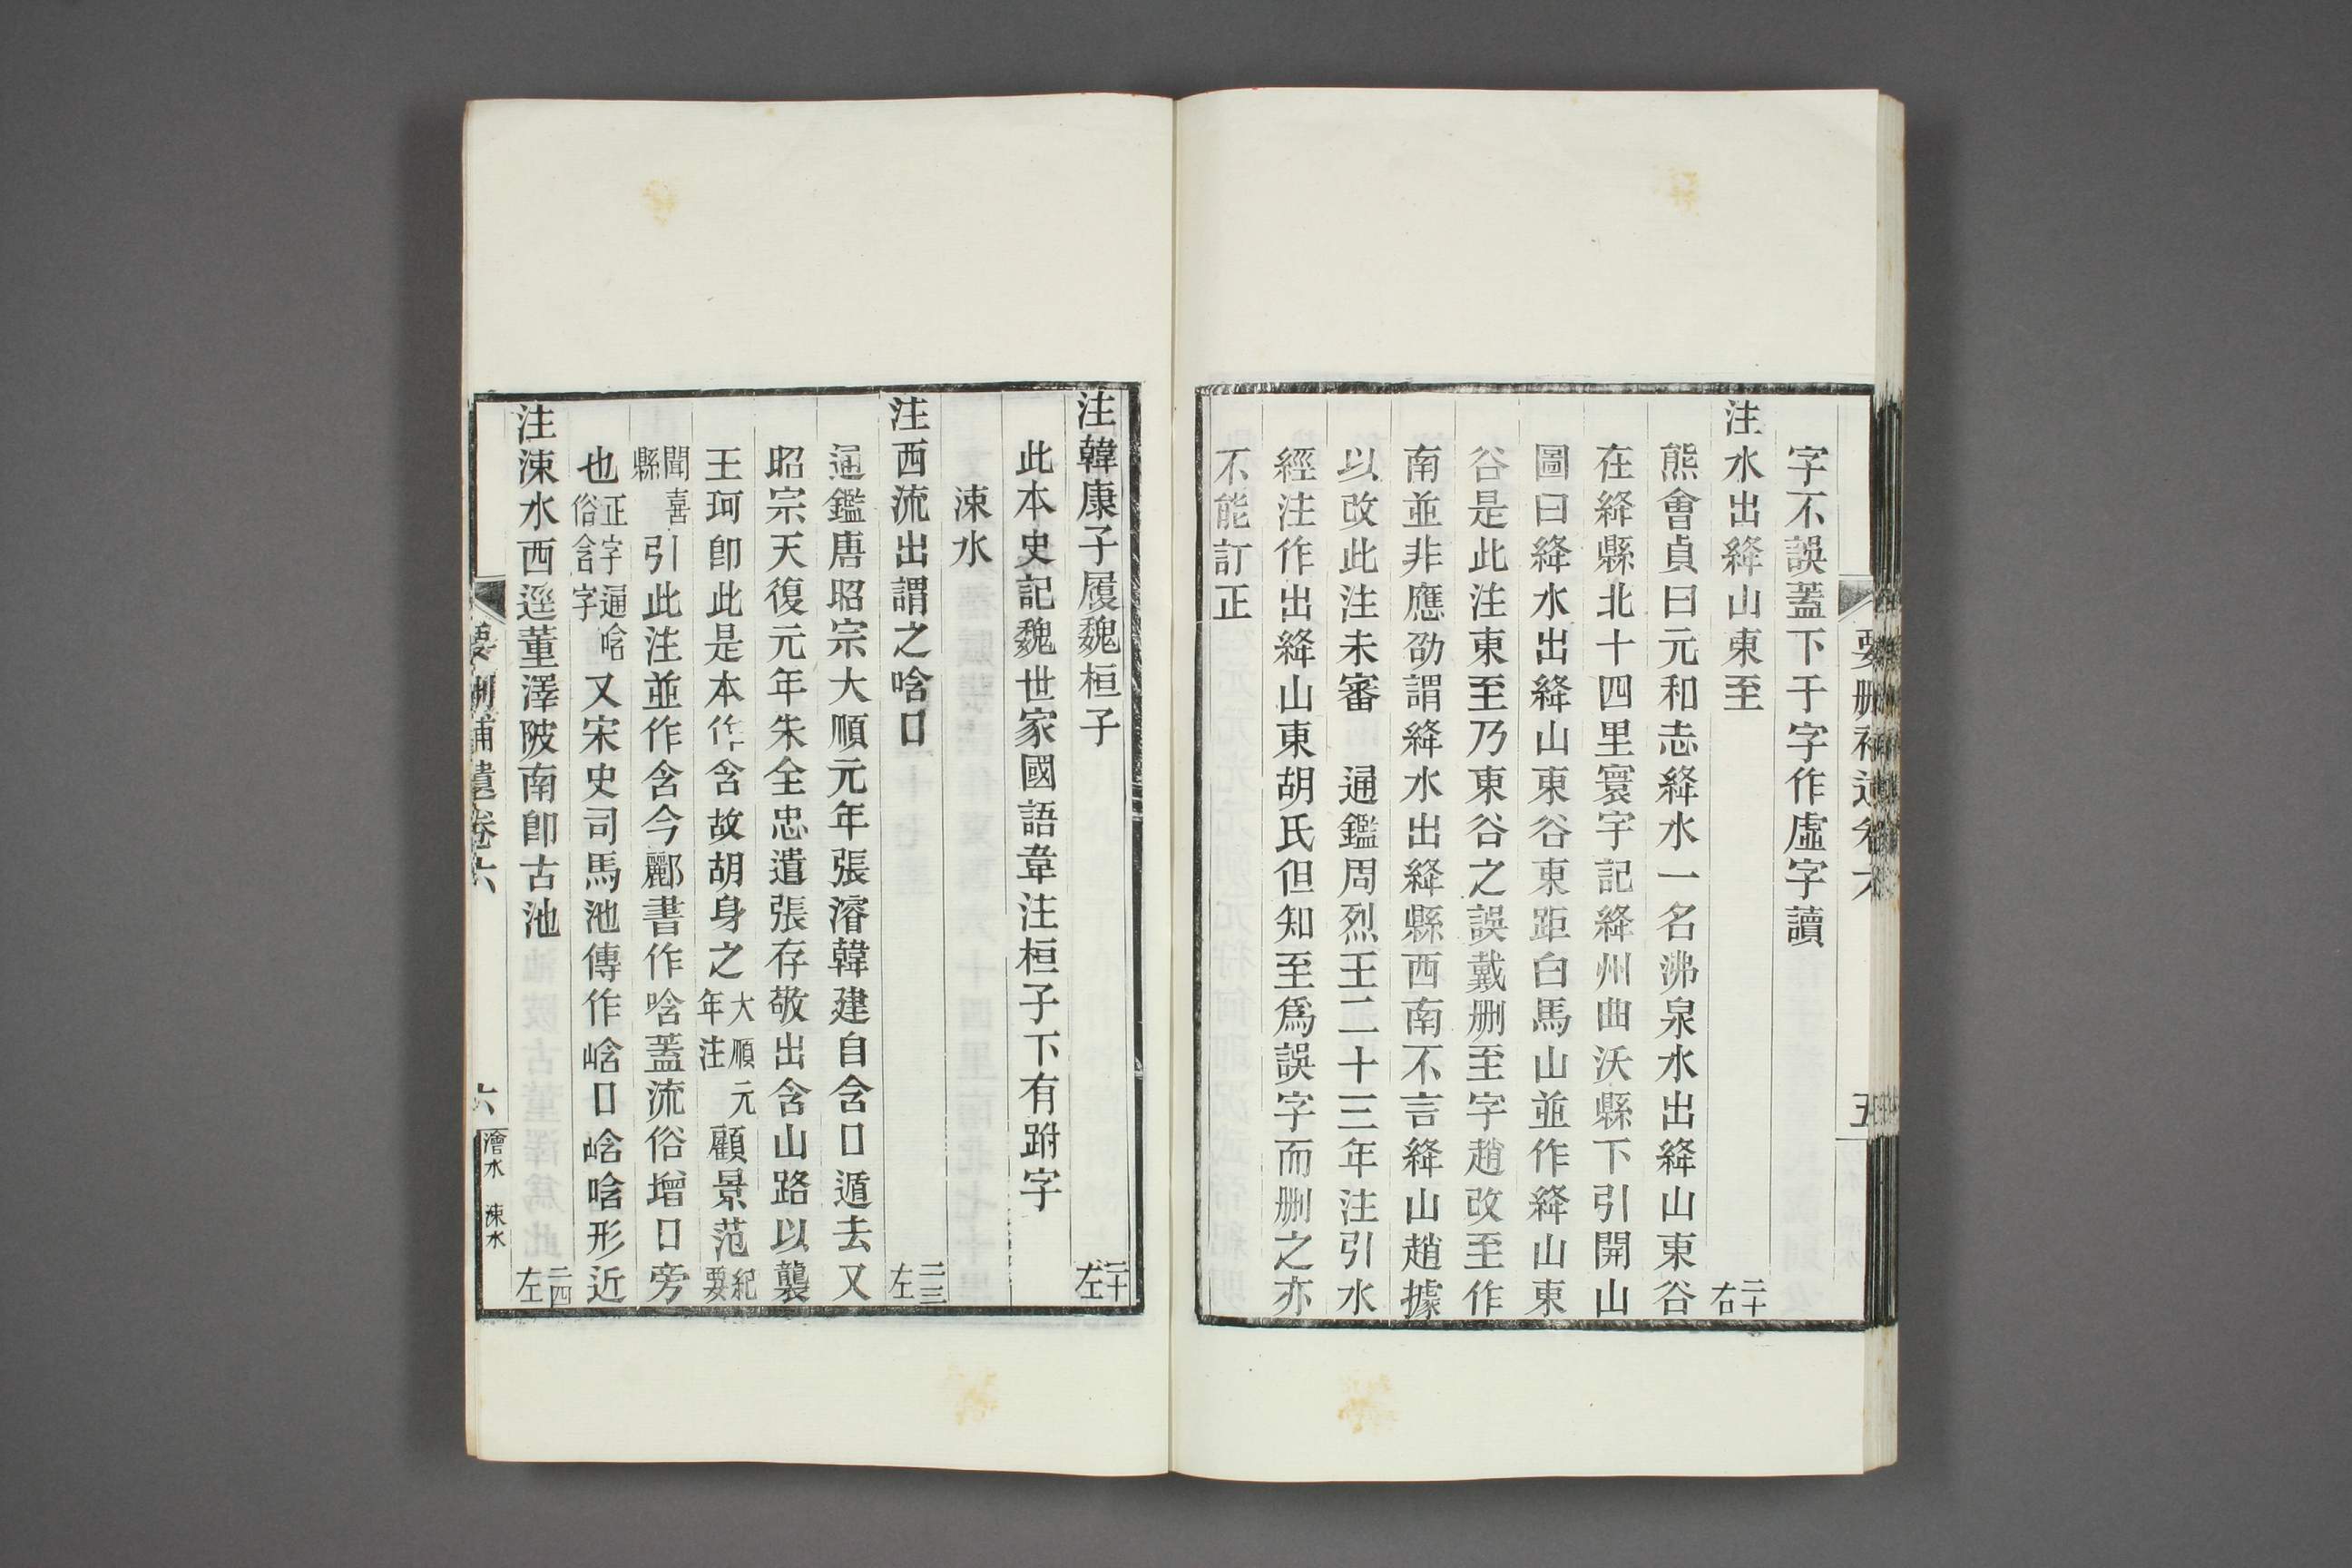 字不誤蓋下于字作虛字讀
注水出絳山東至 二十右
熊會貞曰元和志絳水一名沸泉水出絳山東谷
在絳縣北十四里寰宇記絳州曲沃縣下引開山
圖曰絳水出絳山東谷東距白馬山並作絳山東
谷是此注東至乃東谷之誤戴刪至字趙改至作
南並非應劭謂絳水出絳縣西南不言絳山趙據
以改此注未審 通鑑周烈王二十三年注引水
經注作出絳山東胡氏但知至爲誤字而刪之亦
不能訂正
注韓康子履魏桓子 二十左
此本史記魏世家國語韋注桓子下有跗字
涑水
注西流出謂之唅口 二三左
通鑑唐昭宗大順元年張濬韓建自含口遁去又
昭宗天復元年朱全忠遣張存敬出含山路以襲
王珂卽此是本作含故胡身之大順元年注顧景范紀要
聞喜縣引此注並作含今酈書作唅蓋流俗增口旁
也正字通唅俗含字又宋史司馬池傳作崡口崡唅形近
注涑水西逕董澤陂南卽古池 二四左
要刪補遺卷六
六
澮水 涑水